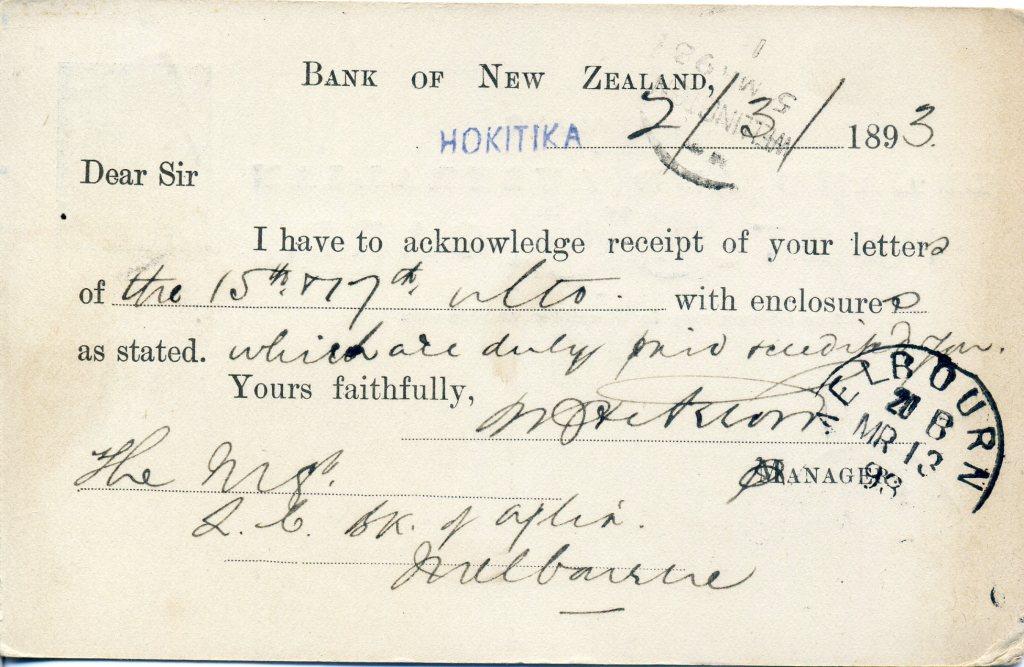 BANK OF NEW ZEALAND,
HOKITIKA 2/3/ 1893.
WELLINGTON
5 MR 93
1
Dear Sir
I have to acknowledge receipt of your letters
of the 15th & 17th ulto. with enclosures
as stated. which are duly paid credited you.
Yours faithfully,
MANAGER
MELBOURN
20 B
MR 13
93
The Mgr.
L. C. Bk. of
Melbourne